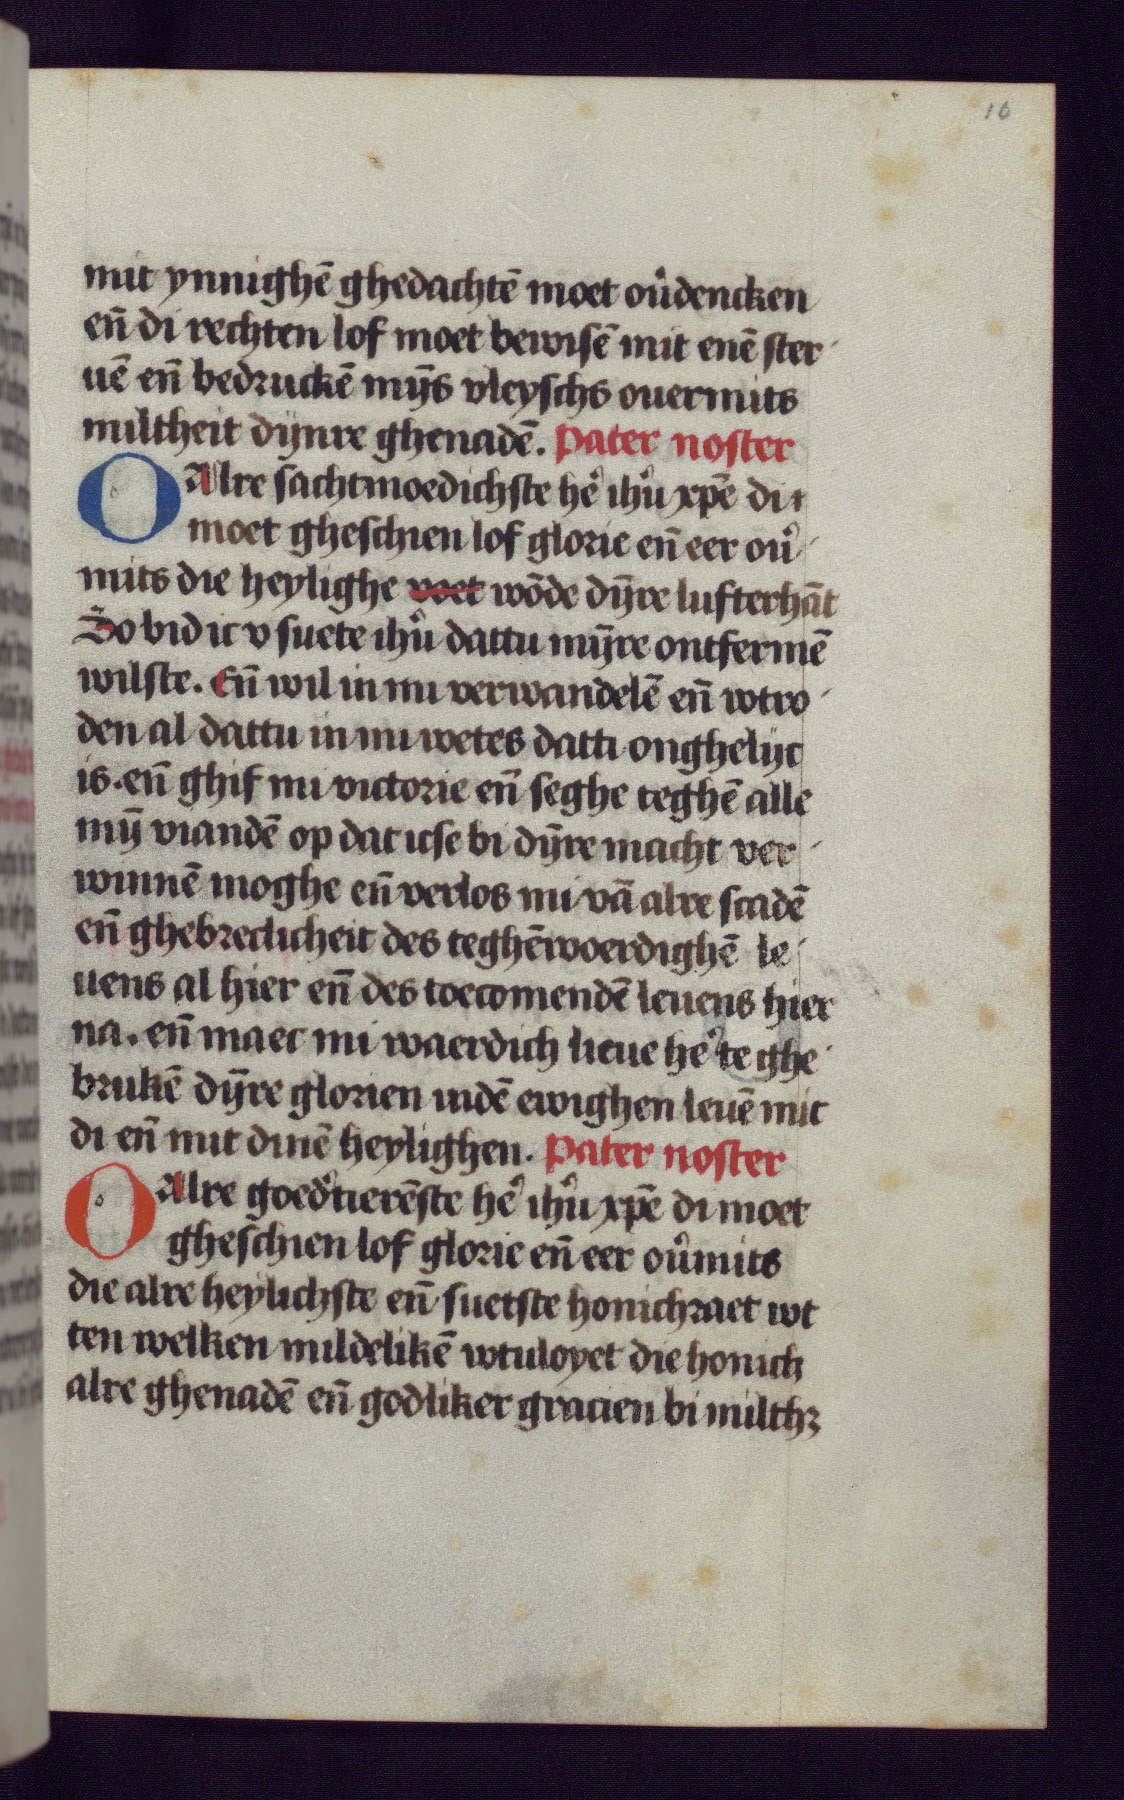 16
mit ynnighē ghedachtē moet ou᷑dencken
en̄ di rechten lof moet bewisē mit enē ster
uē en̄ bedruckē mȳs vleyschs ouermits
miltheit dynre ghenadē. Pater noster
O Alre sachtmoedichste he᷑ ihu᷑ xpē di
moet gheschien lof glorie en̄ eer ou᷑
mits die heylighe voet wōde dȳre lufterhāt
So bid ic v suete ihu᷑ dattu mȳre ontfermē
wilste. En̄ wil in mi verwandelē en̄ wtro
den al dattu in mi wetes datti onghelijc
is. en̄ ghif mi victorie en̄ seghe teghē alle
mȳ viandē op dat icse bi dȳre macht ver
winnē moghe en̄ verlos mi vā alre scadē
en̄ ghebreclicheit des teghēwoerdighē le
uens al hier en̄ des toecomendē leuens hier
na. en̄ maec mi waerdich lieue he᷑ te ghe
brukē dȳre glorien indē ewighen leuē mit
di en̄ mit dinē heylighen. Pater noster
O Alre goed᷑tierēste he᷑ ihu᷑ xpē di moet
gheschien lof glorie en̄ eer ou᷑mits
die alre heylichste en̄ suetste honichraet wt
ten welken mildelikē wtuloyet die honich
alre ghenadē en̄ godliker gracien bi milthꝫ